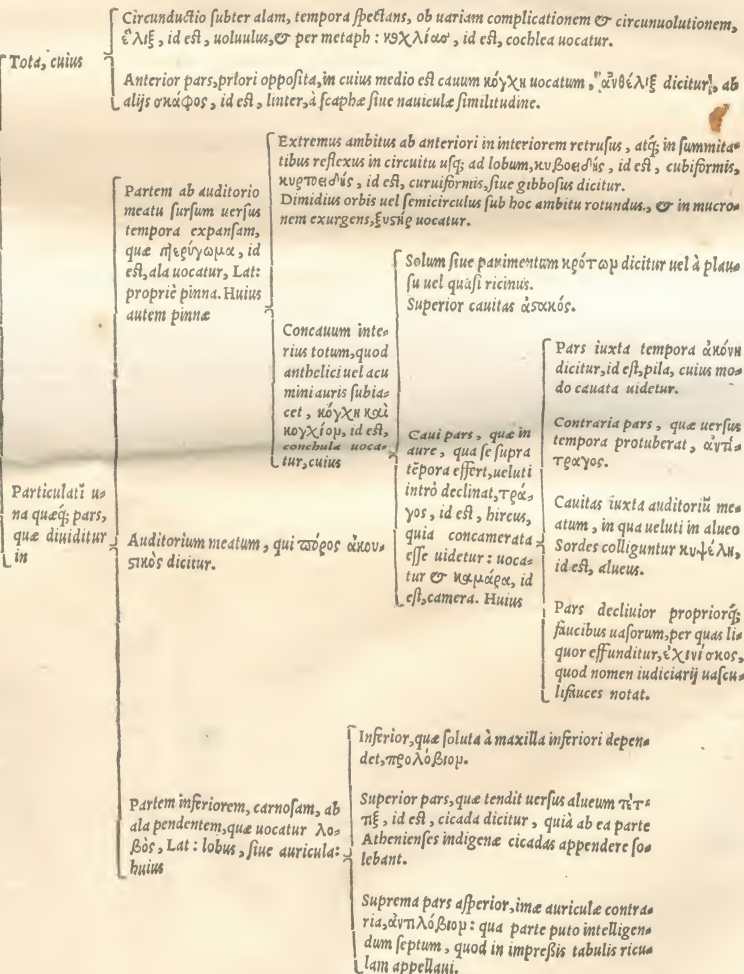 Tota, cuius
Circunductio subter alam, tempora spectans, ob uariam complicationem & circunuolutionem,
ἕλιξ, id est, uoluulus, & per metaph: νοχλίας, id est, cochlea uocatur.
Anterior pars, priori opposita, in cuius medio est cauum κόγχη uocatum, ἀνθέλιξ dicitur, ab
alijs σκάφος, id est, linter, à scaphæ siue nauiculæ similitudine.
Particulatī u-
na quæq; pars,
quæ diuiditur
in
Partem ab auditorio
meatu sursum uersus
tempora expansam,
quæ πτερύγωμα, id
est, ala uocatur, Lat:
propriè pinna. Huius
autem pinnæ
Extremus ambitus ab anteriori in interiorem retrusus, atq; in summita-
tibus reflexus in circuitu usq; ad lobum, κυβοειδὴς, id est, cubiformis,
κυρτοειδὴς, id est, curuiformis, siue gibbosus dicitur.
Dimidius orbis uel semicirculus sub hoc ambitu rotundus., & in mucro-
nem exurgens, ξυστὴρ uocatur.
Concauum inte-
rius totum, quod
anthelici uel acu
mini auris subia-
cet, κόγχη καὶ
κογχίομ, id est,
conchula uoca-
tur, cuius
Solum siue pauimentum κρότωμ dicitur uel à plau-
su uel quasi ricinus.
Superior cauitas ἀστακός.
Caui pars, quæ in
aure, qua se supra
tēpora effert, ueluti
intrò declinat, τρά-
γος, id est, hircus,
quia concamerata
esse uidetur: uoca-
tur & καμάρα, id
est, camera. Huius
Pars iuxta tempora ἀκόνη
dicitur, id est, pila, cuius mo-
do cauata uidetur.
Contraria pars, quæ uersus
tempora protuberat, ἀντί-
τραγος.
Cauitas iuxta auditoriū me-
atum, in qua ueluti in alueo
Sordes colliguntur κυψέλη,
id est, alueus.
Pars decliuior propriorq;
faucibus uasorum, per quas li-
quor effunditur, ἐχινίσκος,
quod nomen iudiciarij uascu-
li fauces notat.
Auditorium meatum, qui πόρος ἀκου-
στικὸς dicitur.
Partem inferiorem, carnosam, ab
ala pendentem, quæ uocatur λο-
βὸς, Lat: lobus, siue auricula:
huius
Inferior, quæ soluta à maxilla inferiori depen-
det, προλόβιομ.
Superior pars, quæ tendit uersus alueum τέτ-
τιξ, id est, cicada dicitur, quià ab ea parte
Athenienses indigenæ cicadas appendere so-
lebant.
Suprema pars asperior, imæ auriculæ contra-
ria, ἀντιλόβιομ: qua parte puto intelligen-
dum septum, quod in impreßis tabulis ricu-
lam appellaui.